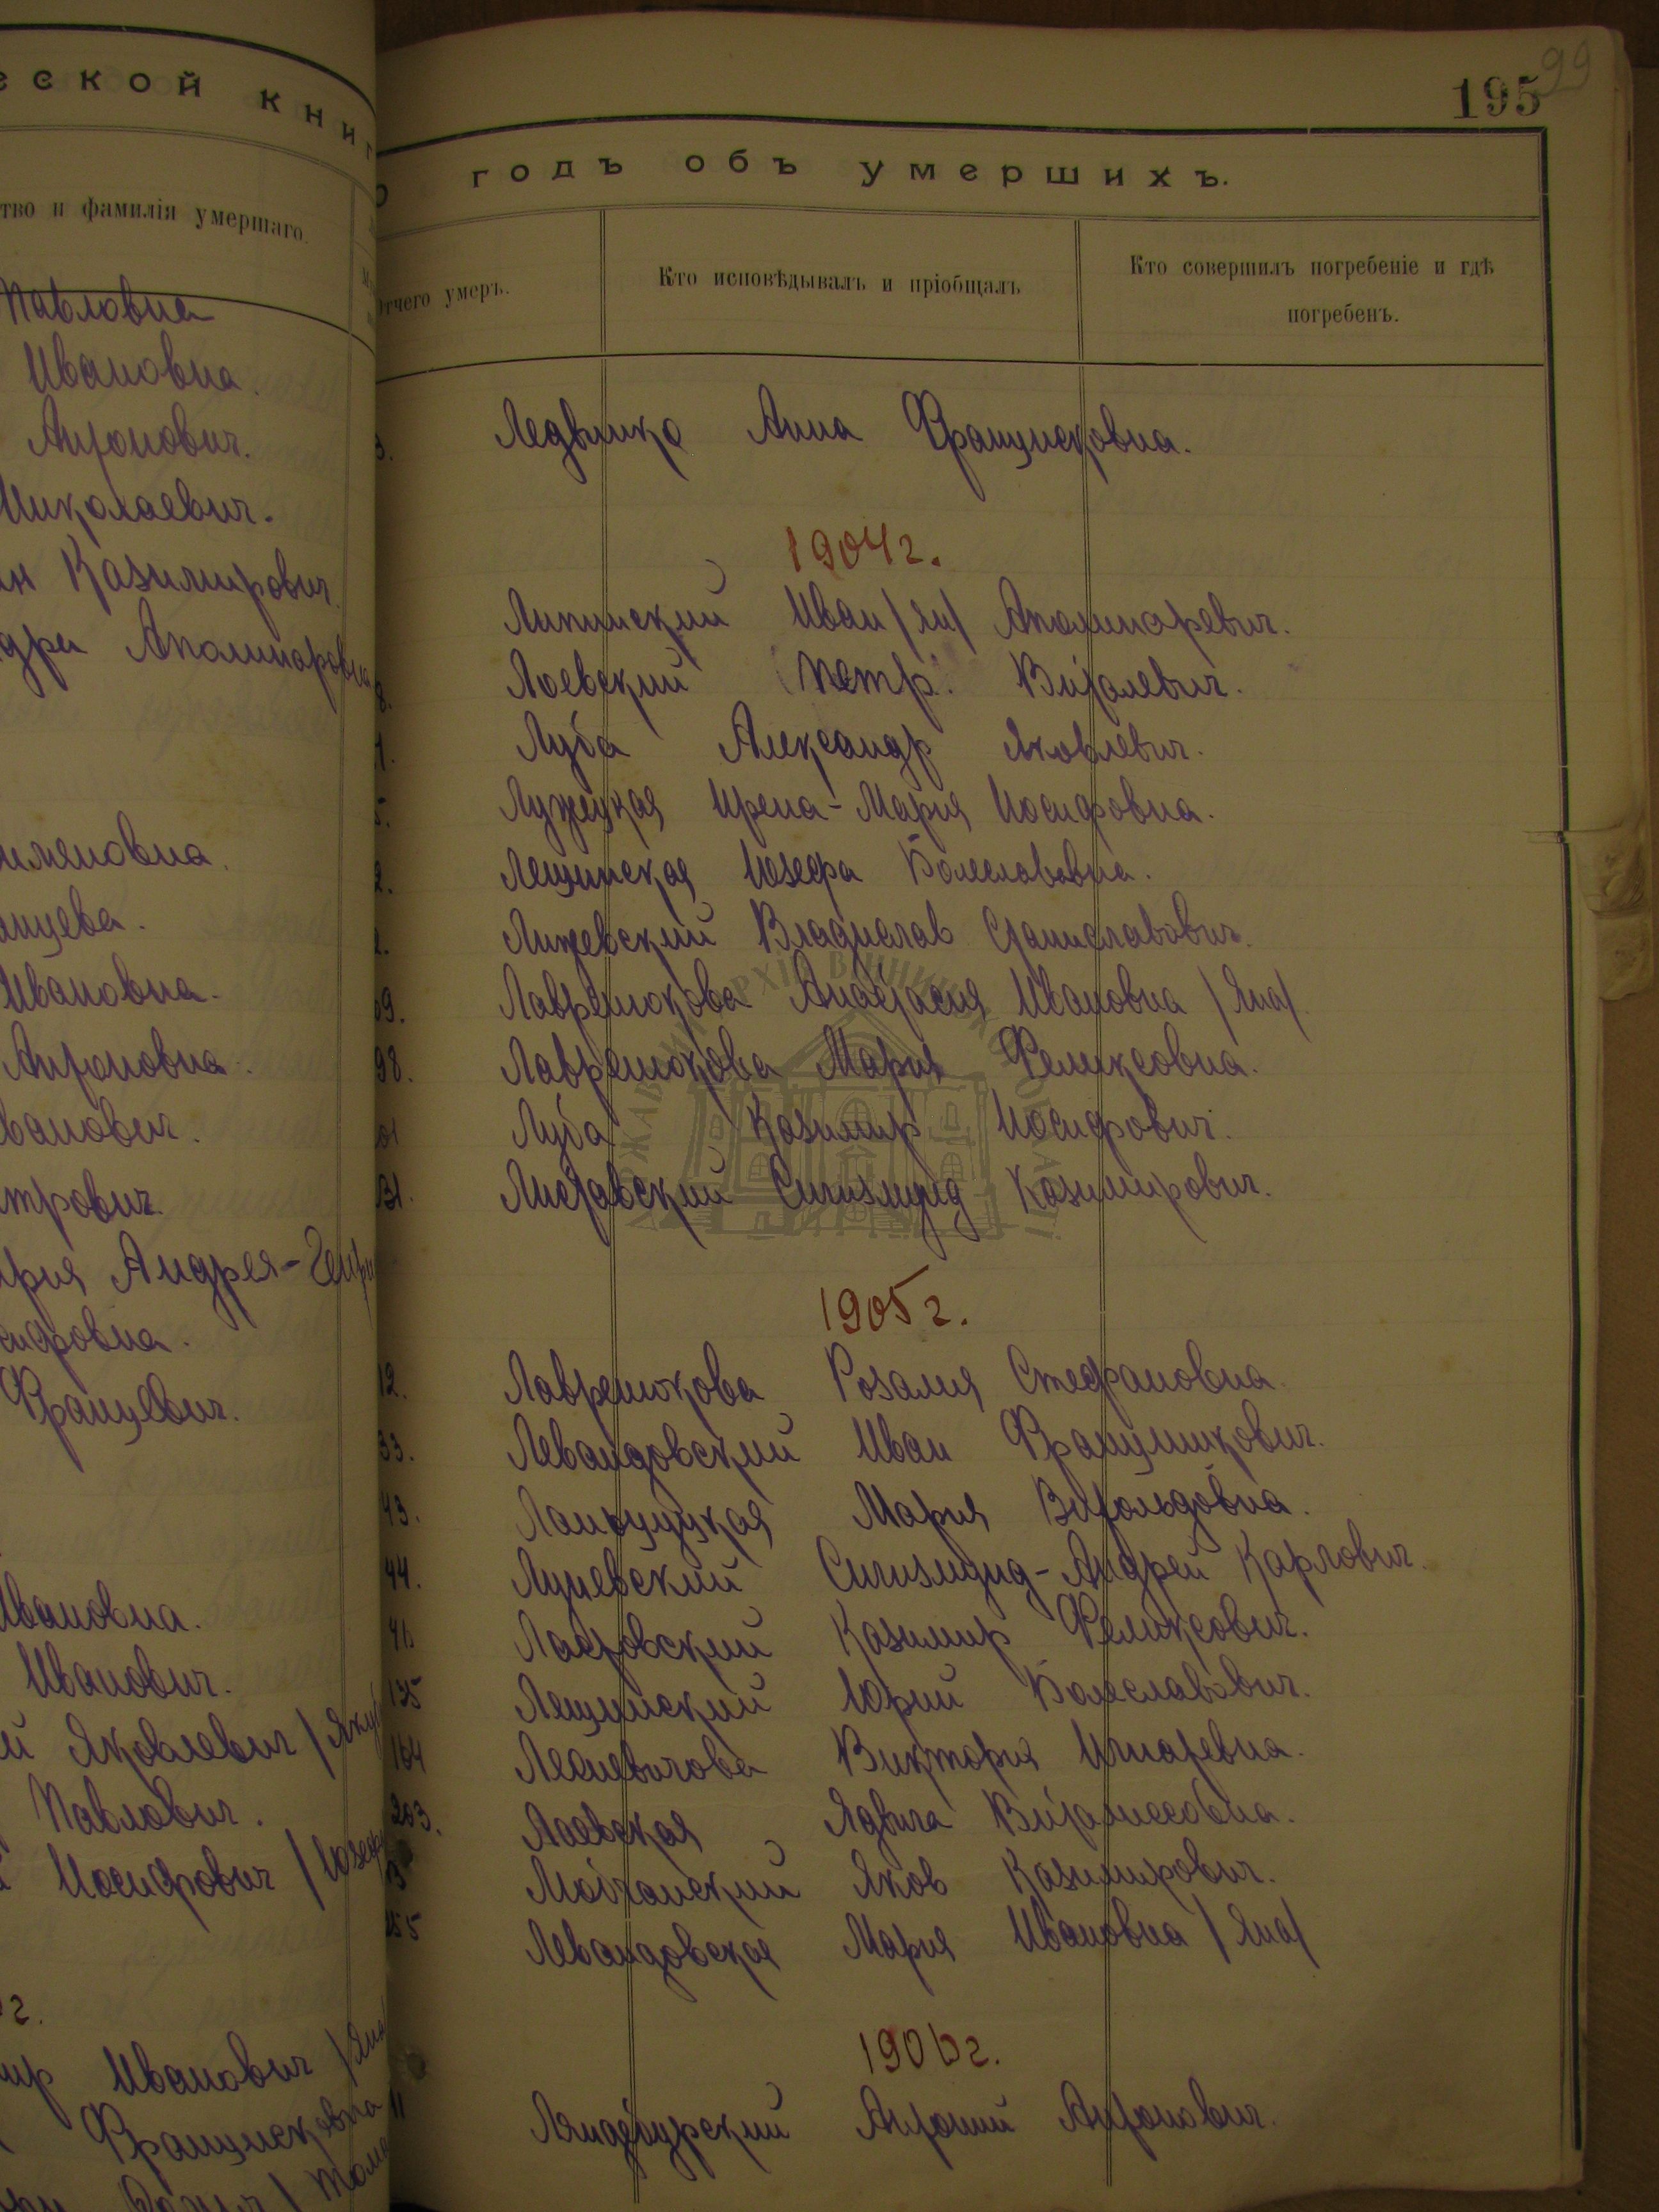 ской книг
тво и фамилія умершаго.
Павловна
Ивановна.
Антонович.
Николаевич.
Казимирович.
Аполинаровна
Ивановна.
Антоновна.
Иванович.
трович.
рия Андрея-Генри
сифовна.
Францевич.
Ивановна.
Иванович.
й Яковлевич
Павлович.
Иосифович / Юзефа
г.
Иванович / Яна
Францисковна
99
195
годъ объ умершихъ.
Отчего умеръ.
Кто исповѣдывалъ и пріобщалъ
Кто совершилъ погребеніе и гдѣ
погребенъ.
3. Ледвинко Анна Францисковна.
1904 г.
Липинский Иван /Ян/ Аполинаревич.
8. Лоевский Петр. Виталевич.
1. Луба Александр Яковлевич.
5. Лужецкая Ирена-Мария Иосифовна.
2. Лещинская Юзефа Болеславовна.
Лижевский Владислав Станиславович.
09. Лавренюкова Анастасия Ивановна /Яна/
98. Лавренюкова Мария Феликсовна.
01 Луба Казимир Иосифович.
31. Листовский Сигизмунд Казимирович.
1905 г.
12. Лавренюкова Розалия Стефановна.
33. Левандовский Иван Францишкович.
43. Мария Витольдовна.
44. Луневский Сигизмунд-Андрей Карлович.
46 Ластовский Казимир Феликсович.
135 Лещинский Юрий Болеславович.
164 Лесневичова Виктория Игнатевна.
203. Лоевская Ядвига
Яков Казимирович.
255 Левандовская Мария Ивановна /Яна/
1906 г.
11 Антоний Антонович.